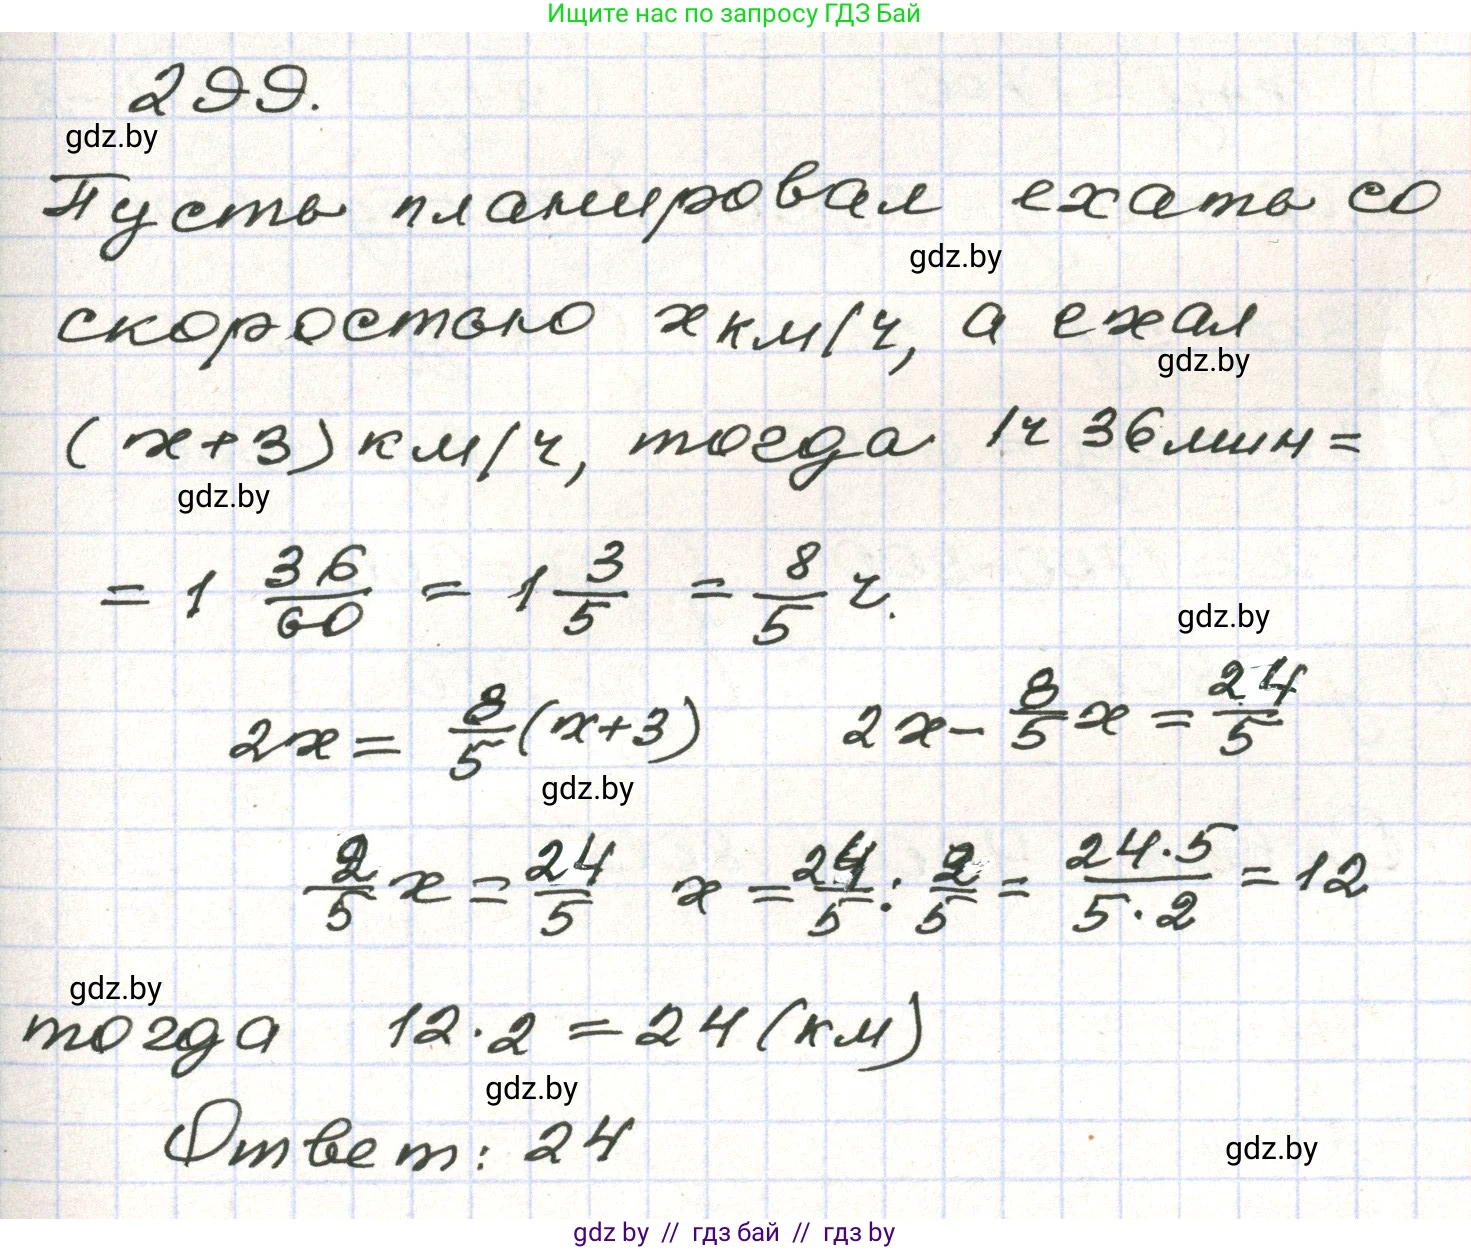 Ищите нас по запросу ГДЗ Бай
299.
gdz.by
Пусть планировал ехать со
gdz.by
скоростью x км/ч, а ехал
gdz.by
(x+3) км/ч, тогда 1ч 36мин =
gdz.by
= 1 36/60 = 1 3/5 = 8/5 ч.
gdz.by
2x = 8/5 (x+3) 2x - 8/5 x = 24/5
gdz.by
2/5 x = 24/5 x = 24/5 : 2/5 = 24·5/5·2 = 12
gdz.by
тогда 12·2 = 24 (км)
gdz.by
Ответ: 24
gdz.by
gdz by // гдз бай // гдз by